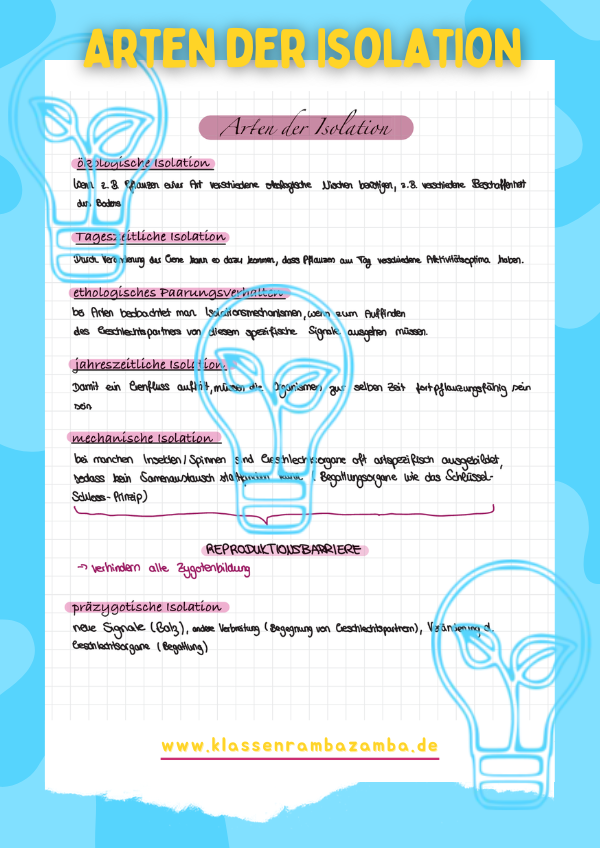 ARTEN DER ISOLATION
Arten der Isolation
ökologische Isolation
Wenn z.B. Pflanzen einer Art verschiedene ökologische Nischen benötigen, z.B. verschiedene Beschaffenheit
des Bodens
Tageszeitliche Isolation
Durch Veränderung der Gene kann es dazu kommen, dass Pflanzen am Tag verschiedene Aktivitätsoptima haben.
ethologisches Paarungsverhalten
bei Arten beobachtet man Isolationsmechanismen, wenn zum Auffinden
des Geschlechtspartners von diesem spezifische Signale ausgehen müssen.
jahreszeitliche Isolation
Damit ein Genfluss auftritt, müssen die Organismen zur selben Zeit fortpflanzungsfähig sein
sein
mechanische Isolation
bei manchen Insekten/Spinnen sind Geschlechtsorgane oft artspezifisch ausgebildet,
sodass kein Samenaustausch stattfinden kann ( Begattungsorgane wie das Schlüssel-
Schloss-Prinzip)
REPRODUKTIONSBARRIERE
→ verhindern alle Zygotenbildung
präzygotische Isolation
neue Signale (Balz), andere Verbreitung (Begegnung von Geschlechtspartnern), Veränderung d.
Geschlechtsorgane (Begattung)
www.klassenrambazamba.de